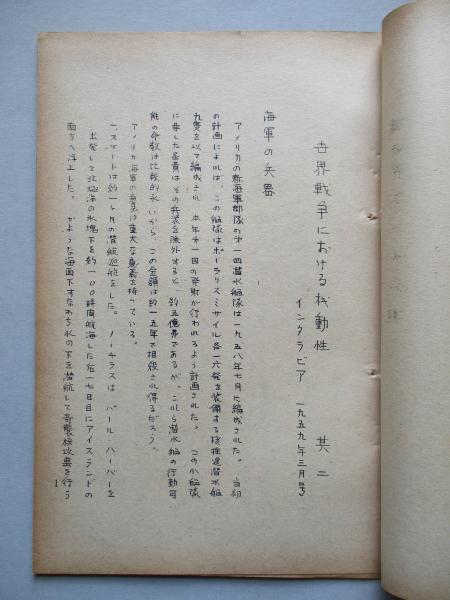 世界戦争における機動性　其二
インタラビア　一九五九年三月号
海軍の兵器
アメリカの新海軍部隊の第一四潜水艦隊は一九五八年七月に編成された。当初
の計画によれば、この艦隊はポーラリスミサイル各一六発を装備する核推進潜水艦
九隻を以て編成され、本年第一回の発射が行われるよう計画された。この小艦隊
に要した経費はその兵装を除外すると、約五億弗であるが、これら潜水艦の行動可
能の命数は比較的永いから、この金額は約一五年で相殺され得るだろう。
アメリカ海軍の意見は重大な意義を持っている。
一、スケートは約一ヶ月の潜航巡航をした。ノーチラスは パール ハーバーを
出発して北極海の氷塊下を約一〇〇時間航海した后一七日目にアイスランドの
南方へ浮上した。かような海面下すなわち氷の下を潜航して奇襲核攻撃を行う
1